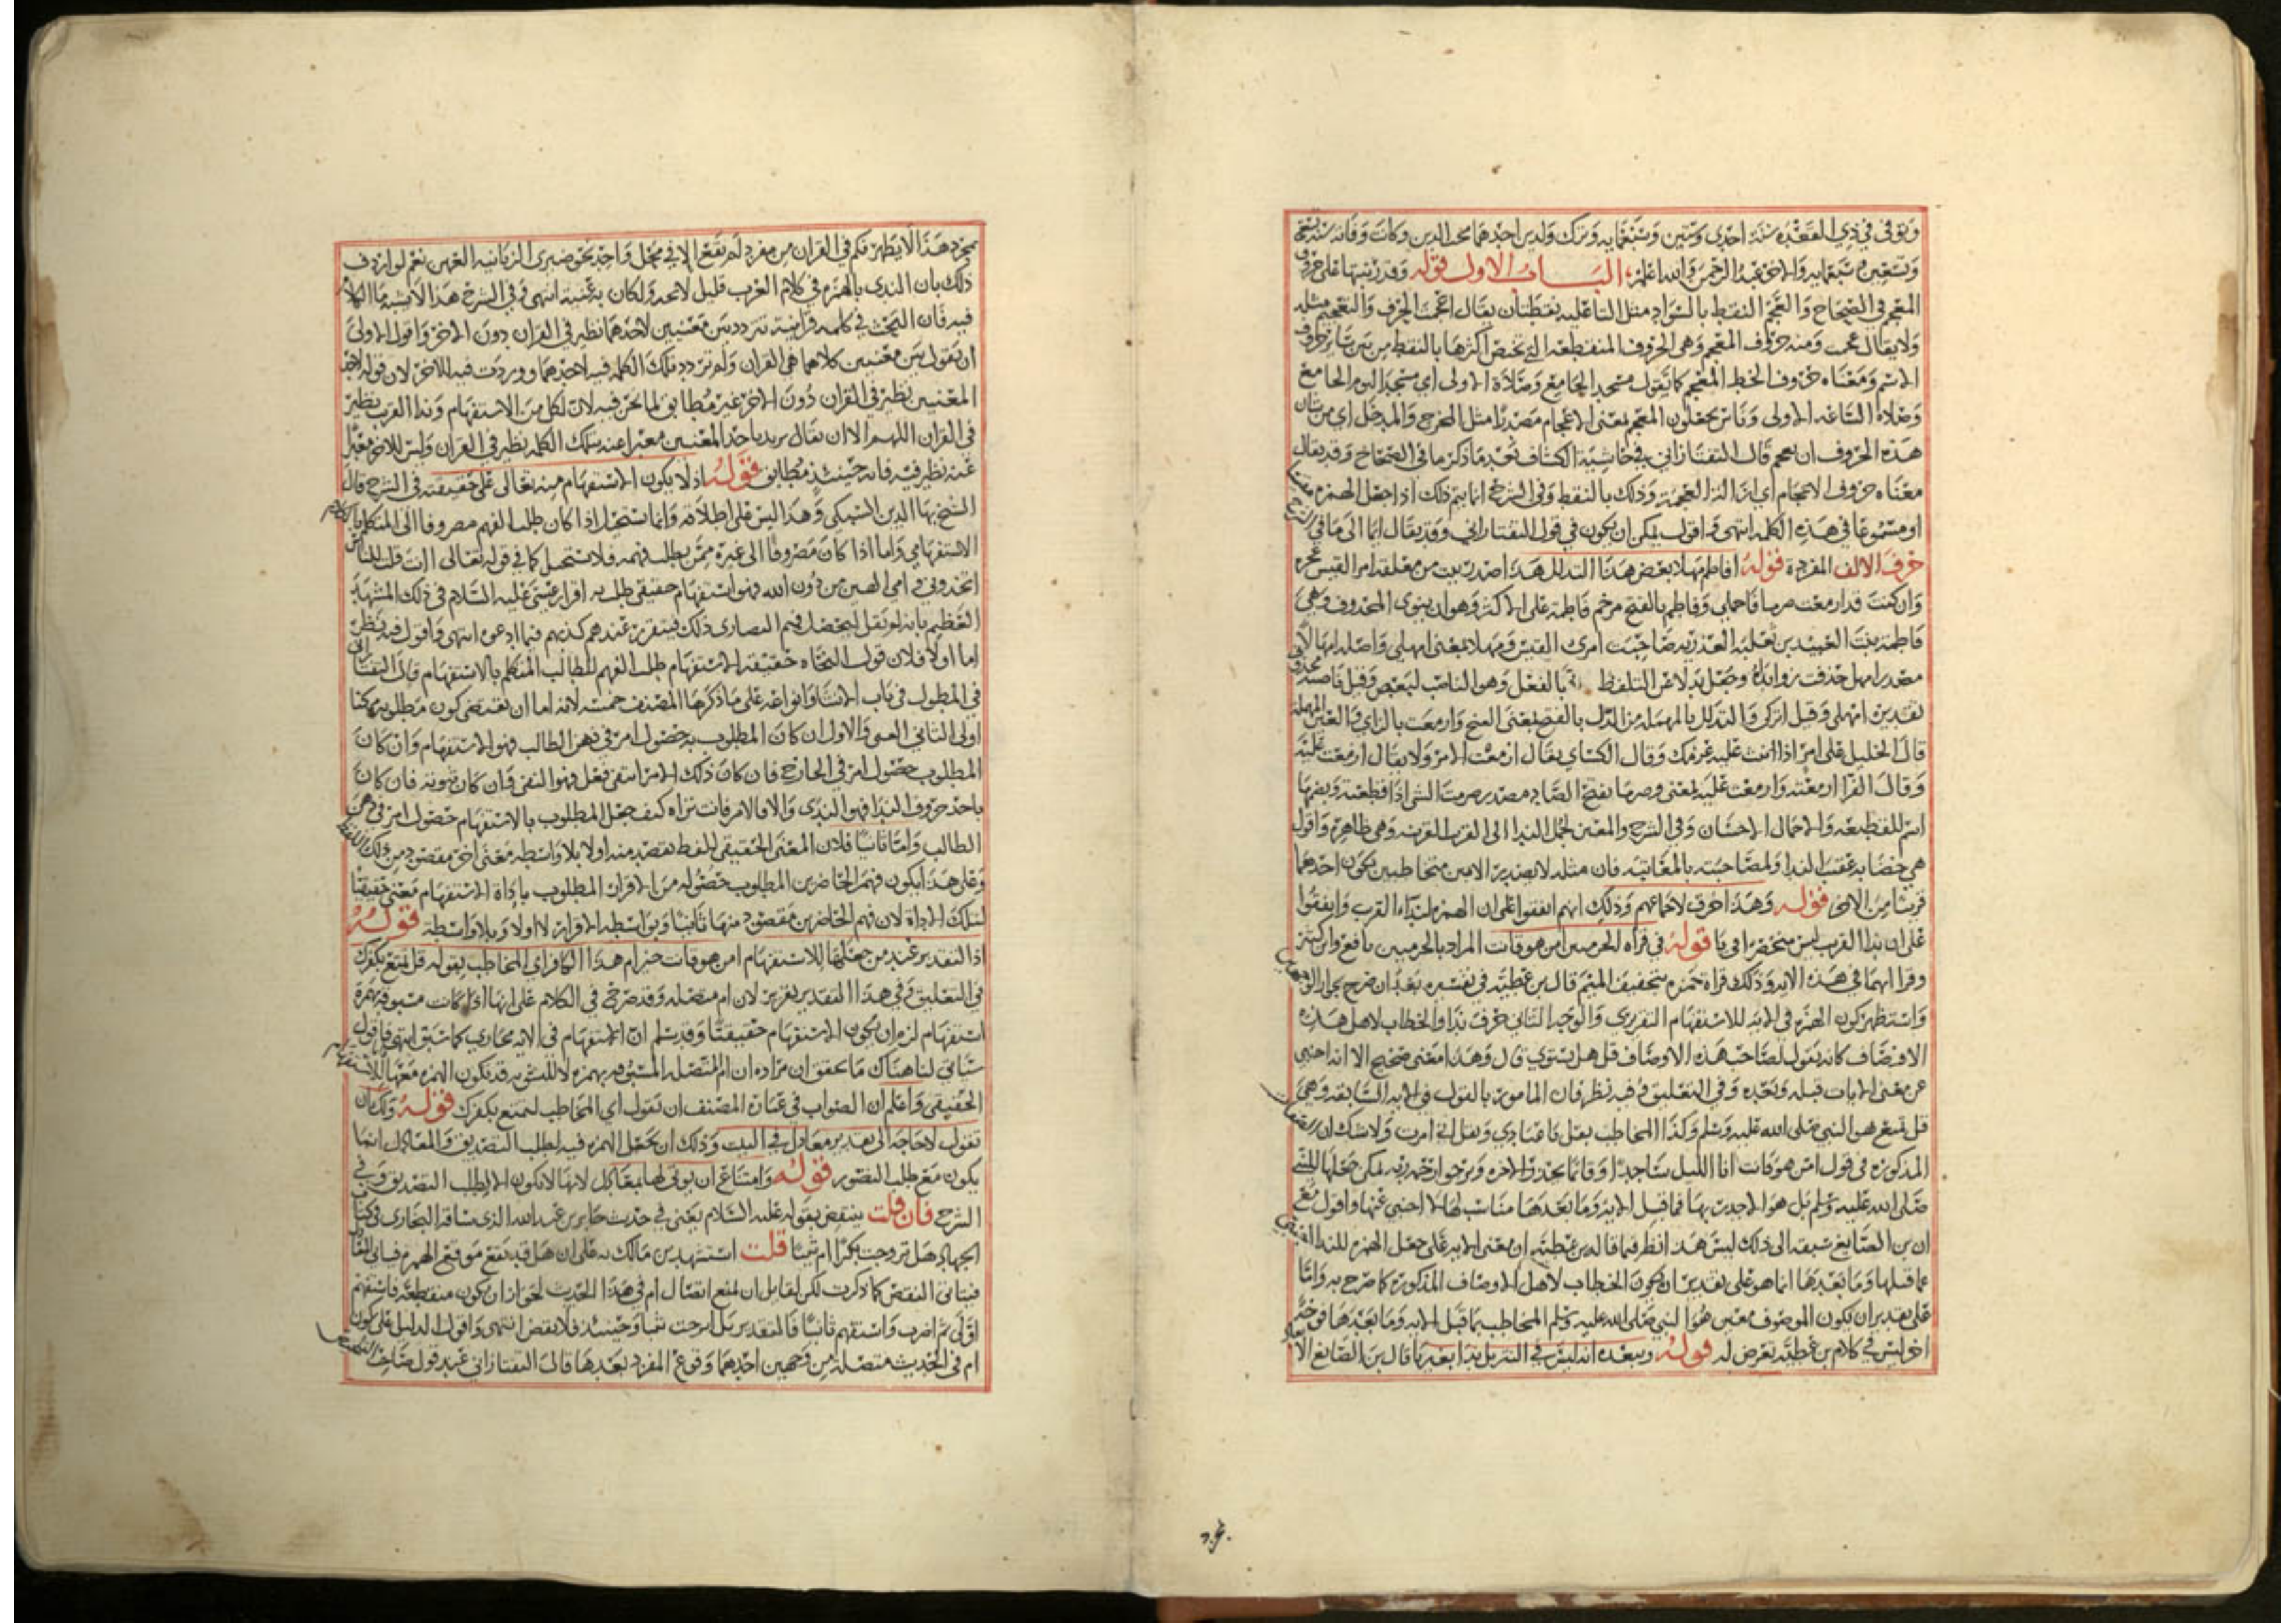 وتوفي في ذي القعدة سنة احدى وستين وسبعماية وترك ولدين احدهما محب الدين وكانت وفاته سنة تسع
وتسعين وسبعماية والاخر عبد الرحمن والله اعلم الباب الاول قوله وقد رتبتها على حروف
المعجم في الصحاح والعجم النقط بالسواد مثل التا عليه نقطتان يقال اعجمت الحرف والتعجيم مثله
ولا يقال عجمت ومنه حروف المعجم وهي الحروف المنقطعة التي يختص اكثرها بالنقط من بين سائر حروف
الاسم ومعناه حروف الخط المعجم كما تقول مسجد الجامع وصلاة الاولى اي مسجد اليوم الجامع
وصلاة الساعة الاولى وناس يجعلون المعجم بمعنى الاعجام مصدرا مثل المخرج والمدخل اي من شان
هذه الحروف ان تعجم قال التفتازاني في حاشية الكشاف بعد ما ذكر ما في الصحاح وقد يقال
معناه حروف الاعجام اي ازالة العجمة وذلك بالنقط وفي الشرح انما يتم ذلك اذا جعل الهمزة
او مسموعا في هذه الكلمة انتهى واقول يمكن ان يكون في قول التفتازاني وقد يقال ايما الى ما في الشرح
حرف الالف المفردة قوله افاطم مهلا بعض هذا التدلل هذا صدر بيت من معلقة امرا القيس عجزه
وان كنت قد ازمعت صرما فاجملي وفاطم بالفتح مرخم فاطمة على الاكثر وهو ان ينوى المحذوف وهي
فاطمة بنت العبيد بن ثعلبة العذرية صاحبت امرئ القيس ومهلا بمعنى امهلي واصله امهالا
مصدر امهل حذفت زوائده وجعل بدلا عن التلفظ بالفعل وهو الناصب لبعض وقيل ناصبه محذوف
تقديره امهلي وقيل اتركي والتدلل بالمهملة من الدل بالفتح بمعنى الغنج وازمعت بالزاي والعين المهملة
قال الخليل على امر اذا ثبت عليه عزمك وقال الكسائي يقال ازمعت الامر ولا يقال ازمعت عليه
وقال الفرا ازمعته وازمعت عليه بمعنى وصرما بفتح الصاد مصدر صرمت الشي اذا قطعته وبضمها
اسم للقطيعة والاجمال الاحسان وفي الشرح والمعين لحمل الندا الى القرب القرينة وهي ظاهرة واقول
هي خصابه عقيب الندا ولمصاحبته بالمعاتبة فان مثله لا يصدر الا من متخاطبين يكون احدهما
قريبا من الاخر قوله وهذا اخرق لاجماعهم وذلك انهم اتفقوا على ان الهمزة لنداء القرب واتفقوا
على ان ندا القرب ليس منحصرا في يا قوله في قراة الحرميين امن هو قانت المراد بالحرميين نافع وابن كثير
وقرا ايهما في هذه الاية وذلك قراة حمزة بتخفيف الميم قال بن عطية في تفسيره بعد ان صرح بجواز الوجهين
واستظهر كون الهمزة في الاية للاستفهام التقريري والوجه الثاني حرف ندا والخطاب لاهل هذه
الاوصاف كانه يقول لصاحب هذه الاوصاف قل هل يستوي قال وهذا معنى صحيح الا انه اجنبي
عن معنى الايات قبله وبعده وفي التعليق وفيه نظر فان المامور بالقول في الاية السابقة وهي
قل تمتع هو النبي صلى الله عليه وسلم وكذا المخاطب بقل يا عبادي وبقل اني امرت ولا شك ان الصفات
المذكورة في قول امن هو قانت انا الليل ساجدا وقائما يحذر الاخرة ويرجوا رحمة ربه يمكن جعلها للنبي
صلى الله عليه وسلم بل هو الاجدر بها فما قبل الاية وما بعدها مناسب لها لا اجنبي عنها واقول مع
ان بن الصايغ سبقه الى ذلك ليس هذا نظر فيما قاله بن عطية ان معنى الاية على جعل الهمزة للندا اجنبي
عما قبلها وما بعدها انما هو على تقدير ان يكون الخطاب لاهل الاوصاف المذكورة كما صرح به واما
على تقدير ان يكون الموصوف معين هو النبي صلى الله عليه وسلم المخاطب بما قبل الاية وما بعدها فوجه
اخر ليس في كلام بن عطية تعرض له قوله ويبعده انه ليس في التنزيل ندا بغير يا قال بن الصايغ الا
بمجرد هذا لا يظهر فكم في القران من مفرد لم يقع الا في محل واحد نحو ضيزى الزبانية العهن نعم لو اردف
ذلك بان الندى بالهمزة في كلام العرب قليل لاتجه ولكان به غنية انتهى وفي الشرح هذا لا يشبه ما الكلام
فيه فان البحث في كلمة قرانية تتردد بين معنيين لاحدهما نظير في القران دون الاخر واقول الاولى
ان يقول بين معنيين كلاهما في القران ولم تردد تلك الكلمة فيه لاحدهما ووردت فيه للاخر لان قوله لاحد
المعنيين نظير في القران دون الاخر غير مطابق لما نحن فيه لان لكل من الاستفهام وندا القرب نظير
في القران اللهم الا ان يقال يريد باحد المعنيين معبرا عنه بتلك الكلمة نظير في القران وليس للاخر معبرا
عنه نظير فيه فانه حينئذ مطابق قوله اذ لا يكون الاستفهام منه تعالى على حقيقته في الشرح قال
الشيخ بها الدين السبكي وهذا ليس على اطلاقه وانما يستحيل اذا كان طلب الفهم مصروفا الى المتكلم بالكلام
الاستفهامي واما اذا كان مصروفا الى غيره ممن يطلب فهمه فلا يستحيل كما في قوله تعالى اانت قلت للناس
اتخذوني وامي الهين من دون الله فهو استفهام حقيقي طلب به اقرار عيسى عليه السلام في ذلك المشهد
العظيم بانه لم يقل ليحصل فهم النصارى ذلك فيتقرر عندهم كذبهم فيما ادعوه انتهى واقول فيه نظر
اما اولا فلان قول النحاه حقيقة الاستفهام طلب الفهم للطالب المتكلم بالاستفهام قال التفتازاني
في المطول في باب الانشا وانواعه على ما ذكرها المصنف خمسة لانه اما ان يقتضي كون مطلوبه ممكنا
اولى الثاني التمني والاول ان كان المطلوب به حصول امر في ذهن الطالب فهو الاستفهام وان كان
المطلوب حصول امر في الخارج فان كان ذلك الامر انتفى فعل فهو النهي وان كان ثبوته فان كان
باحد حروف الندا فهو الندى والا فالامر فانت تراه كيف جعل المطلوب بالاستفهام حصول امر في ذهن
الطالب واما ثانيا فلان المعنى الحقيقي للفظ يقصد منه اولا بلا واسطة معنى اخر مقصود من ذلك اللفظ
وعلى هذا يكون فهم الحاضرين المطلوب حصوله من الاقرار المطلوب باداة الاستفهام معنى حقيقيا
لتلك الاداة لان فهم الحاضرين مقصود منها ثانيا وبواسطة الاقرار لا اولا وبلا واسطة قوله
اذ التقدير عند من جعلها للاستفهام امن هو قانت خير ام هذا الكافر اي المخاطب بقوله قل تمتع بكفرك
في التعليق وفي هذا التقدير تعزير لان ام متصلة وقد صرح في الكلام على انها اذا كانت مسبوقة بهمزة
استفهام لزم ان يكون الاستفهام حقيقيا وقد سلم ان الاستفهام في الاية مجازي كما سبق انتهى واقول
سياتي لنا هناك ما يحقق ان مراده ان ام المتصلة المسبوقة بهمزة لا للتسوية قد تكون الهمزة معها للاستفهام
الحقيقي واعلم ان الصواب في عبارة المصنف ان تقول اي المخاطب لتمتع بكفرك قوله ولك ان
تقول لا حاجة الى تقدير معادل في البيت وذلك ان تجعل الهمزة فيه لطلب التصديق والمعادل انما
يكون مع طلب التصور قوله وامتناع ان يوتى لها بمعادل لانها لا تكون الا لطلب التصديق وفي
الشرح فان قلت ينتقض بقوله عليه السلام يعني في حديث جابر بن عبد الله الذي ساقه البخاري في كتاب
الجهاد هل تزوجت بكرا ام ثيبا قلت استشهد بن مالك به على ان هل قد تقع موقع الهمزة
فيتاتى النقض كما ذكرت لكن لقائل ان يمنع اتصال ام في هذا الحديث لجواز ان يكون منقطعة فاستفهم
اولى ثم اضرب واستفهم ثانيا فالتقدير بل اتزوجت ثيبا وحينئذ فلا نقض انتهى واقول الدليل على كون
ام في الحديث متصلة من وجهين احدهما وقوع المفرد بعدها قال التفتازاني عند قول صاحب التلخيص